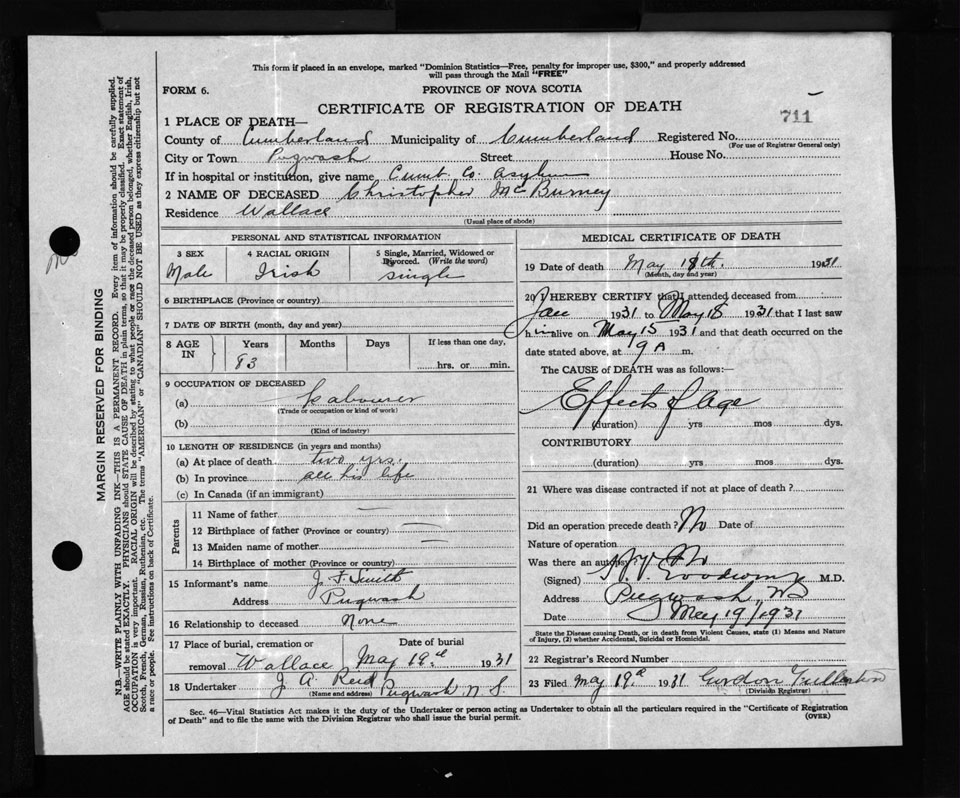 This form if placed in an envelope, marked "Dominion Statistics—Free, penalty for improper use, $300," and properly addressed
will pass through the Mail "FREE"
FORM 6.
PROVINCE OF NOVA SCOTIA
CERTIFICATE OF REGISTRATION OF DEATH
711
1 PLACE OF DEATH—
County of Cumberland Municipality of Cumberland Registered No.
(For use of Registrar General only)
City or Town Pugwash Street House No.
If in hospital or institution, give name Cumb. Co. Asylum
2 NAME OF DECEASED Christopher McBurney
Residence Wallace
(Usual place of abode)
PERSONAL AND STATISTICAL INFORMATION
3 SEX 4 RACIAL ORIGIN 5 Single, Married, Widowed or
Divorced. (Write the word)
Male Irish single
6 BIRTHPLACE (Province or country)
7 DATE OF BIRTH (month, day and year)
8 AGE IN Years Months Days If less than one day,
83 hrs. or min.
9 OCCUPATION OF DECEASED
(a) Labourer
(Trade or occupation or kind of work)
(b)
(Kind of industry)
10 LENGTH OF RESIDENCE (in years and months)
(a) At place of death two yrs.
(b) In province all his life
(c) In Canada (if an immigrant)
Parents
11 Name of father —
12 Birthplace of father (Province or country) —
13 Maiden name of mother —
14 Birthplace of mother (Province or country)
15 Informant's name J. F. Smith
Address Pugwash
16 Relationship to deceased None
17 Place of burial, cremation or Date of burial
removal Wallace May 19th 1931
18 Undertaker J. A. Reid
(Name and address) Pugwash N. S.
MEDICAL CERTIFICATE OF DEATH
19 Date of death May 18th. 1931
(Month, day and year)
20 I HEREBY CERTIFY that I attended deceased from
Jan 1931 to May 18 1931 that I last saw
him alive on May 15 1931 and that death occurred on the
date stated above, at 9 A m.
The CAUSE of DEATH was as follows:—
Effects of Age
(duration) yrs mos dys.
CONTRIBUTORY
(duration) yrs mos dys.
21 Where was disease contracted if not at place of death ?
Did an operation precede death ? No Date of
Nature of operation
Was there an autopsy? No
(Signed) M.D.
Address Pugwash, NS
Date May 19/1931
State the Disease causing Death, or in death from Violent Causes, state (1) Means and Nature
of Injury, (2) whether Accidental, Suicidal or Homicidal.
22 Registrar's Record Number
23 Filed May 19th 1931 Gordon Fullerton
(Division Registrar)
Sec. 46—Vital Statistics Act makes it the duty of the Undertaker or person acting as Undertaker to obtain all the particulars required in the "Certificate of Registration
of Death" and to file the same with the Division Registrar who shall issue the burial permit.
(OVER)
MARGIN RESERVED FOR BINDING
N.B.—WRITE PLAINLY WITH UNFADING INK—THIS IS A PERMANENT RECORD. Every item of information should be carefully supplied.
AGE should be stated EXACTLY. PHYSICIANS should STATE CAUSE OF DEATH in plain terms, so that it may be properly classified. Exact statement of
OCCUPATION is very important. RACIAL ORIGIN will be described by stating to what people or race the deceased person belonged, whether English, Irish,
Scotch, French, German, Russian, Ruthenian, etc. The terms "AMERICAN" or "CANADIAN" SHOULD NOT BE USED as they express citizenship but not
a race or people. See instructions on back of Certificate.